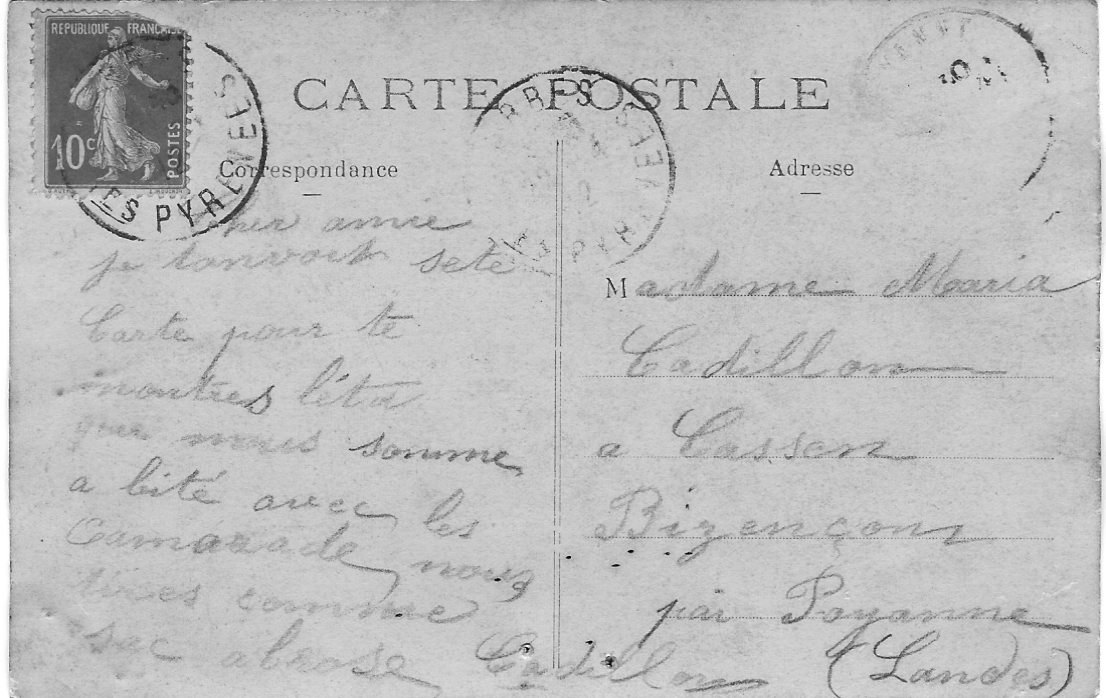 REPUBLIQUE FRANÇAISE
10c
POSTES
PYRENEES
CARTE POSTALE
Correspondance
Adresse
cher amie
je tanvoit sete
Carte pour te
montres léta
que nous somme
a bité avec les
Camarade nous
comme
Cadillon
Madame Maria
Cadillon
a Cassen
Bizençons
par Poyanne
(Landes)